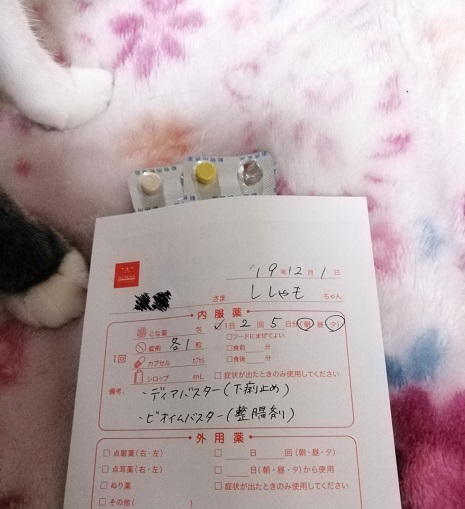 '19年12月1日
さま ししゃも ちゃん
内服薬
こな薬 包 ✓1日 2 回 5 日分(朝・昼・夕)
1回 錠剤 各1 粒 □フードにまぜてよい
□食前 分
カプセル カプセル □食後 分
シロップ mL □症状が出たときのみ使用してください
備考: ・ディアバスター(下痢止め)
・ビオイムバスター(整腸剤)
外用薬
□点眼薬(右・左) □ 日 回(朝・昼・夕)
□点耳薬(右・左) □ 日(朝・昼・夕)から使用
□ぬり薬 □症状が出たときのみ使用してください
□その他( )